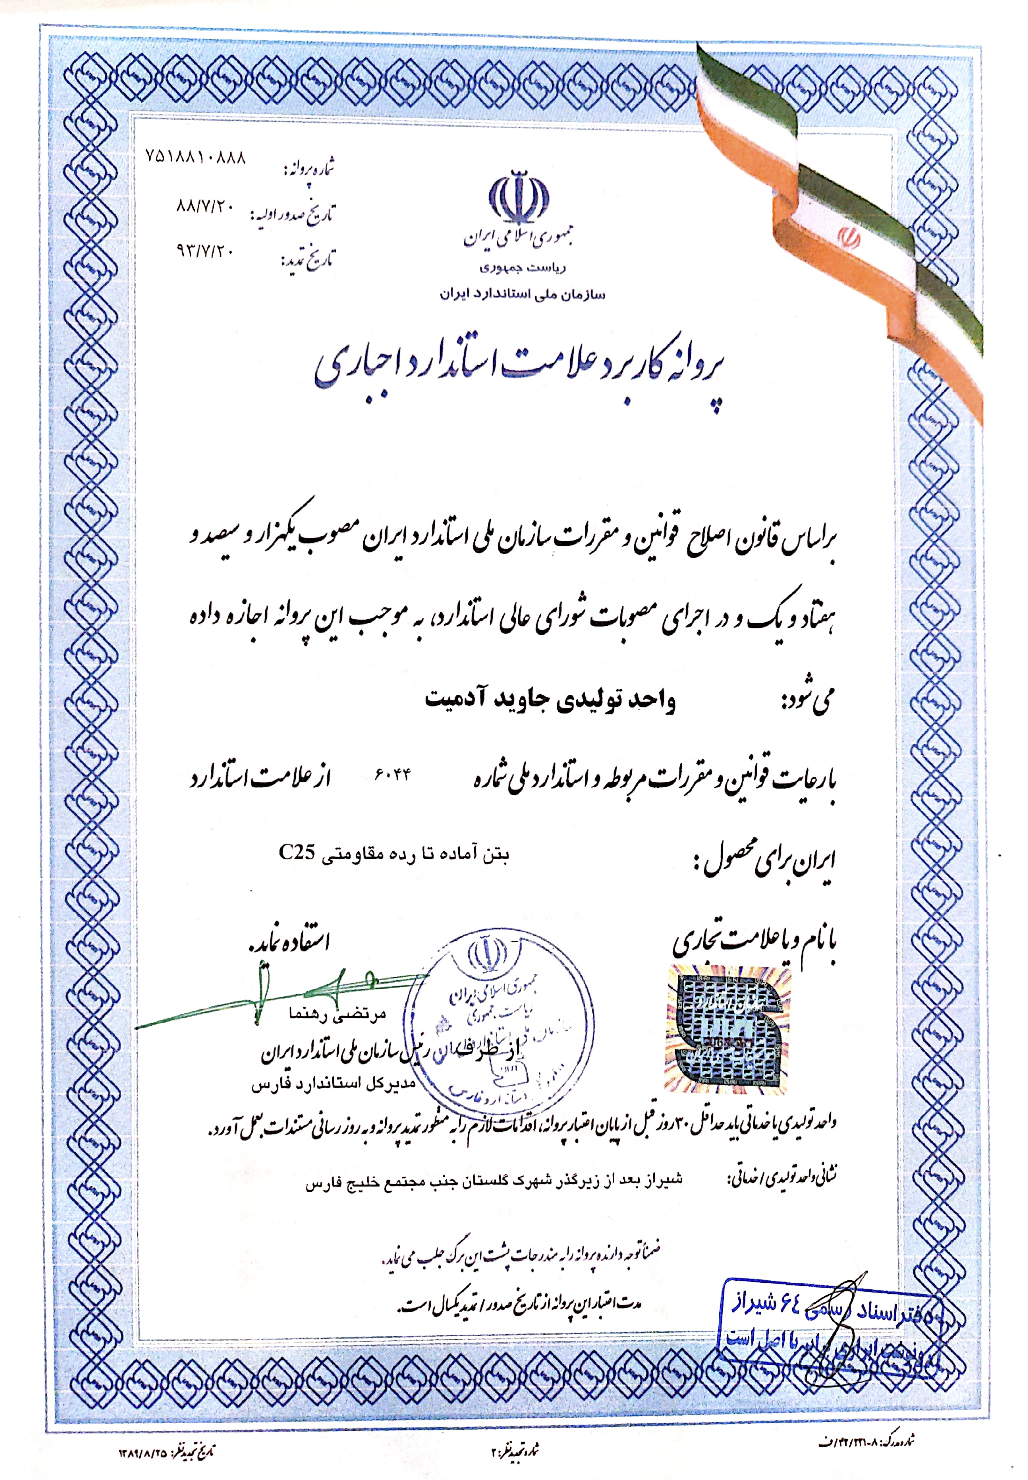 شماره پروانه: ۷۵۱۸۸۱۰۸۸۸
تاریخ صدور اولیه: ۸۸/۷/۲۰
تاریخ تمدید: ۹۳/۷/۲۰
جمهوری اسلامی ایران
ریاست جمهوری
سازمان ملی استاندارد ایران
پروانه کاربرد علامت استاندارد اجباری
براساس قانون اصلاح قوانین و مقررات سازمان ملی استاندارد ایران مصوب یکهزار و سیصد و
هفتاد و یک و در اجرای مصوبات شورای عالی استاندارد، به موجب این پروانه اجازه داده
می شود: واحد تولیدی جاوید آدمیت
با رعایت قوانین و مقررات مربوطه و استاندارد ملی شماره ۶۰۴۴ از علامت استاندارد
ایران برای محصول : بتن آماده تا رده مقاومتی C25
با نام و یا علامت تجاری استفاده نماید.
جمهوری اسلامی ایران
ریاست جمهوری
مرتضی رهنما
از طرف رئیس سازمان ملی استاندارد ایران
مدیرکل استاندارد فارس
واحد تولیدی یا خدماتی باید حداقل ۳۰ روز قبل از پایان اعتبار پروانه، اقدامات لازم را به منظور تمدید پروانه و به روز رسانی مستندات بعمل آورد.
نشانی واحد تولیدی / خدماتی: شیراز بعد از زیرگذر شهرک گلستان جنب مجتمع خلیج فارس
ضمناً توجه دارنده پروانه را به مندرجات پشت این برگ جلب می نماید.
مدت اعتبار این پروانه از تاریخ صدور / تمدید یکسال است.
دفتر اسناد رسمی ۶۴ شیراز
برابر با اصل است
شماره مدرک: ۸-۲۲۱/۴۲/ف
شماره تجدید نظر: ۲
تاریخ تجدید نظر: ۱۳۸۹/۸/۲۵